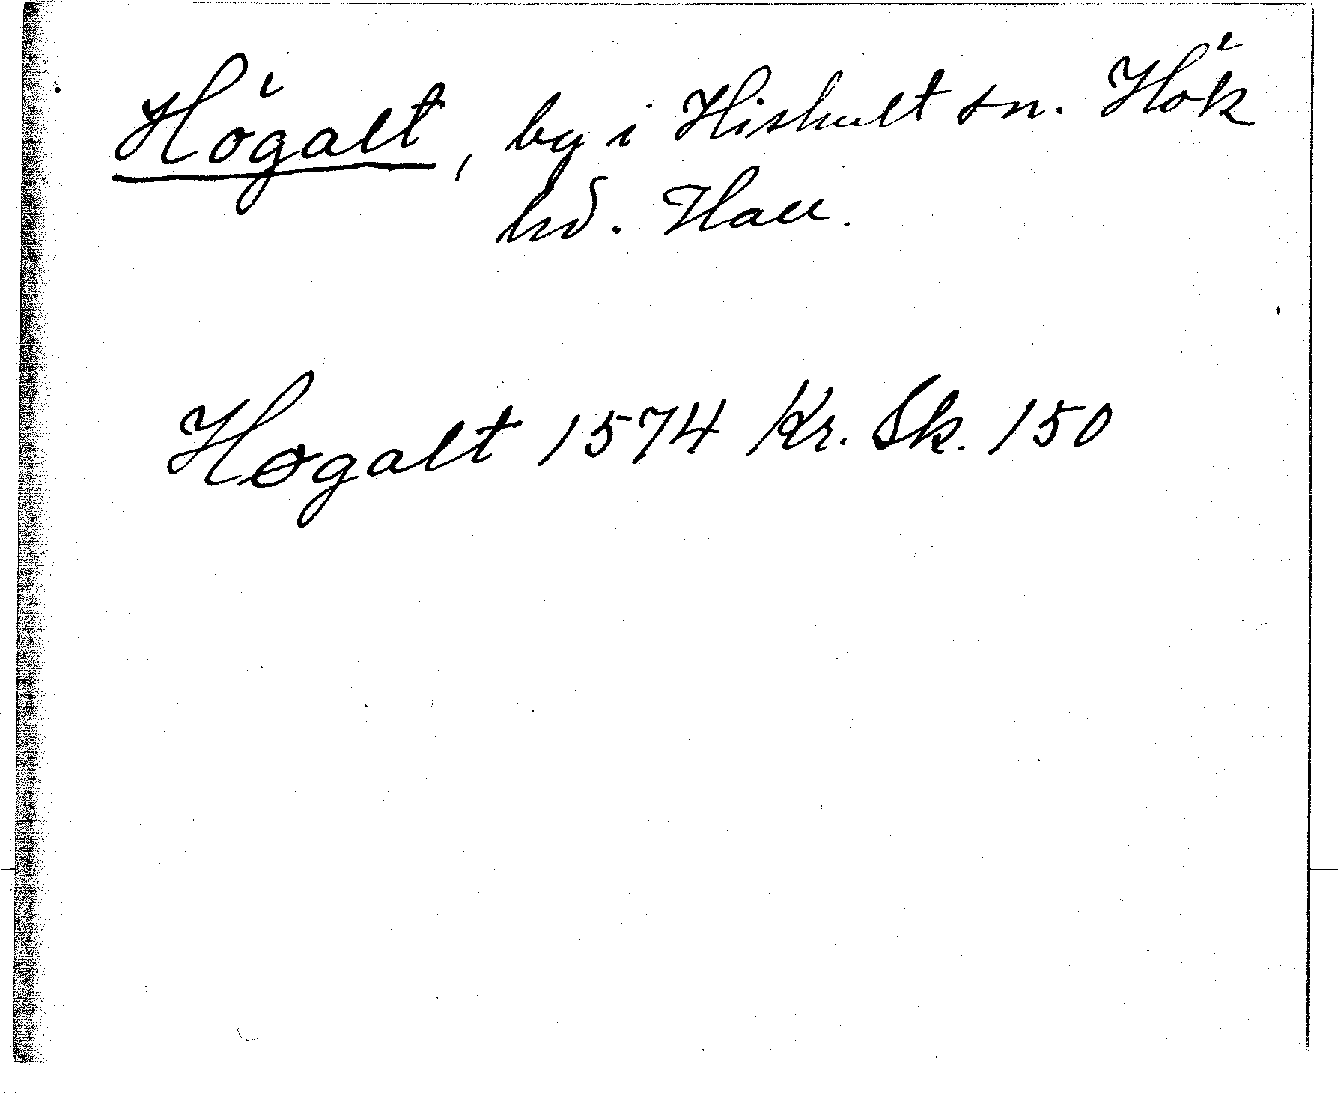 Högalt, by i Hishult sn. Hök
hd. Hall.
Høgalt 1574 Kr. Sk. 150